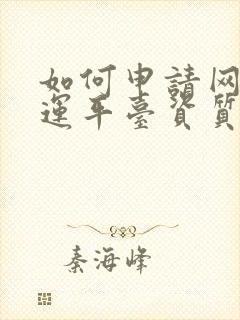 如何申請网
運平臺資質
秦海峰